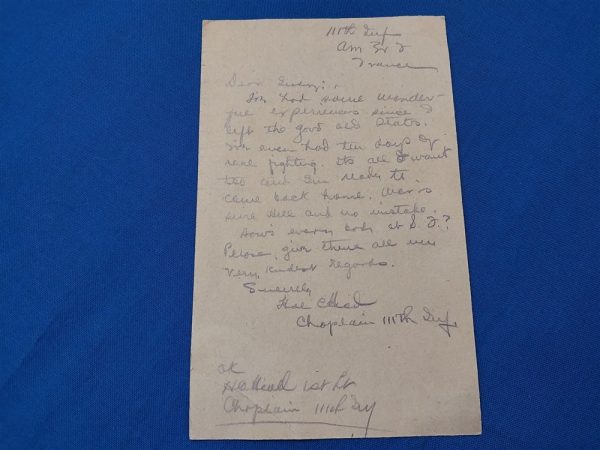 111th Inf
Am Ex F
France
Dear
I've had some wonder-
ful experiences since I
left the good old States.
I've even had ten days of
real fighting. Its all I want
too and I'm ready to
come back home. War is
sure Hell and no mistake.
How's every body at S. J.?
Please give them all my
very kindest regards.
Sincerely
Chaplain 111th Inf
OK
1st Lt
Chaplain 111th Inf